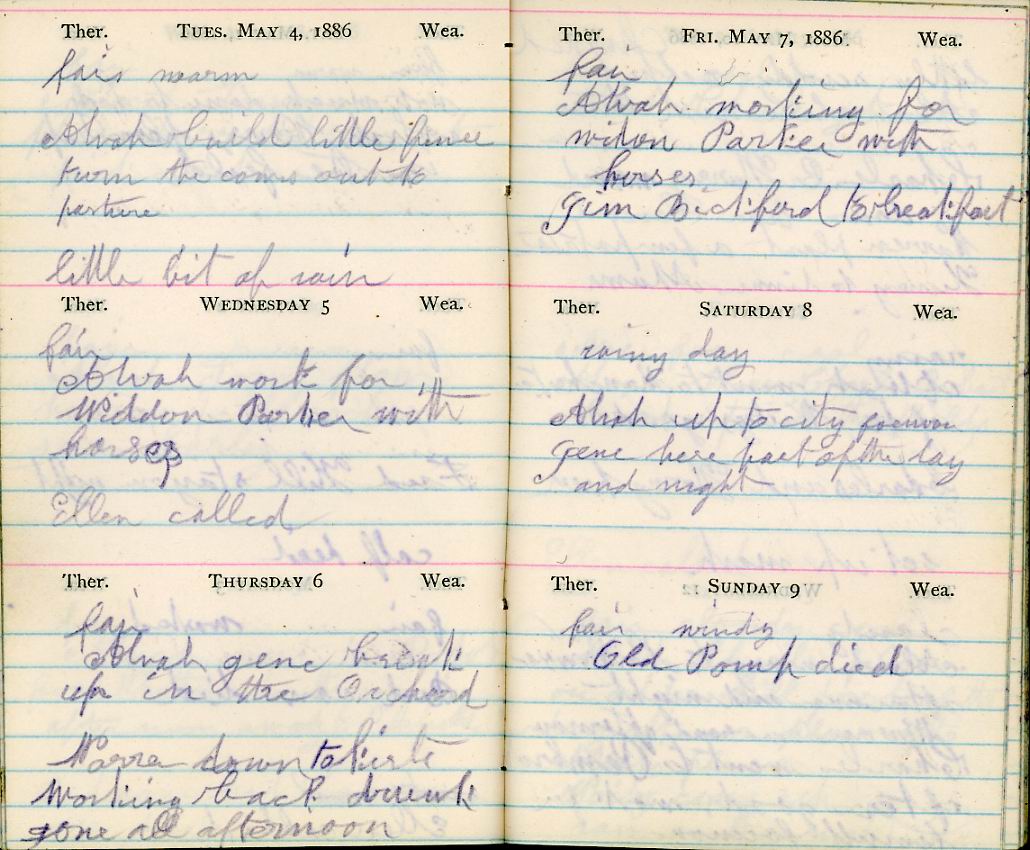 Ther. TUES. MAY 4, 1886 Wea.
fair warm
Alvah build little fence
turn the cows out to
parture
little bit of rain
Ther. WEDNESDAY 5 Wea.
fair
Alvah work for
Widdon Parker with
horses
Ellen called
Ther. THURSDAY 6 Wea.
fair
Alvah gene break
up in the Orchard
Warren down to
Working back drunk
gone all afternoon
Ther. FRI. MAY 7, 1886. Wea.
fair
Alvah working for
widon Parker with
horses
Jim Bickford to breakfast
Ther. SATURDAY 8 Wea.
rainy day
Alvah up to city
gene here part of the day
and night
Ther. SUNDAY 9 Wea.
fair windy
Old Pomp died